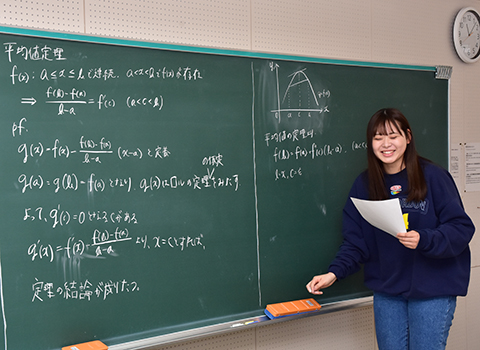 平均値定理
f(x): a≦x≦bで連続, a<x<bでf'(x)が存在
⇒ f(b)-f(a)/b-a = f'(c) (a<c<b)
pf.
g(x) = f(x) - f(b)-f(a)/b-a (x-a) と定義
g(a) = g(b) = f(a) となり、g(x)はロルの定理の仮定をみたす.
よって, g'(c) = 0 となるcがある
g'(x) = f'(x) - f(b)-f(a)/b-a より, x=cとすれば,
定理の結論が成りたつ
y
f(x)
a c b x
平均値の定理